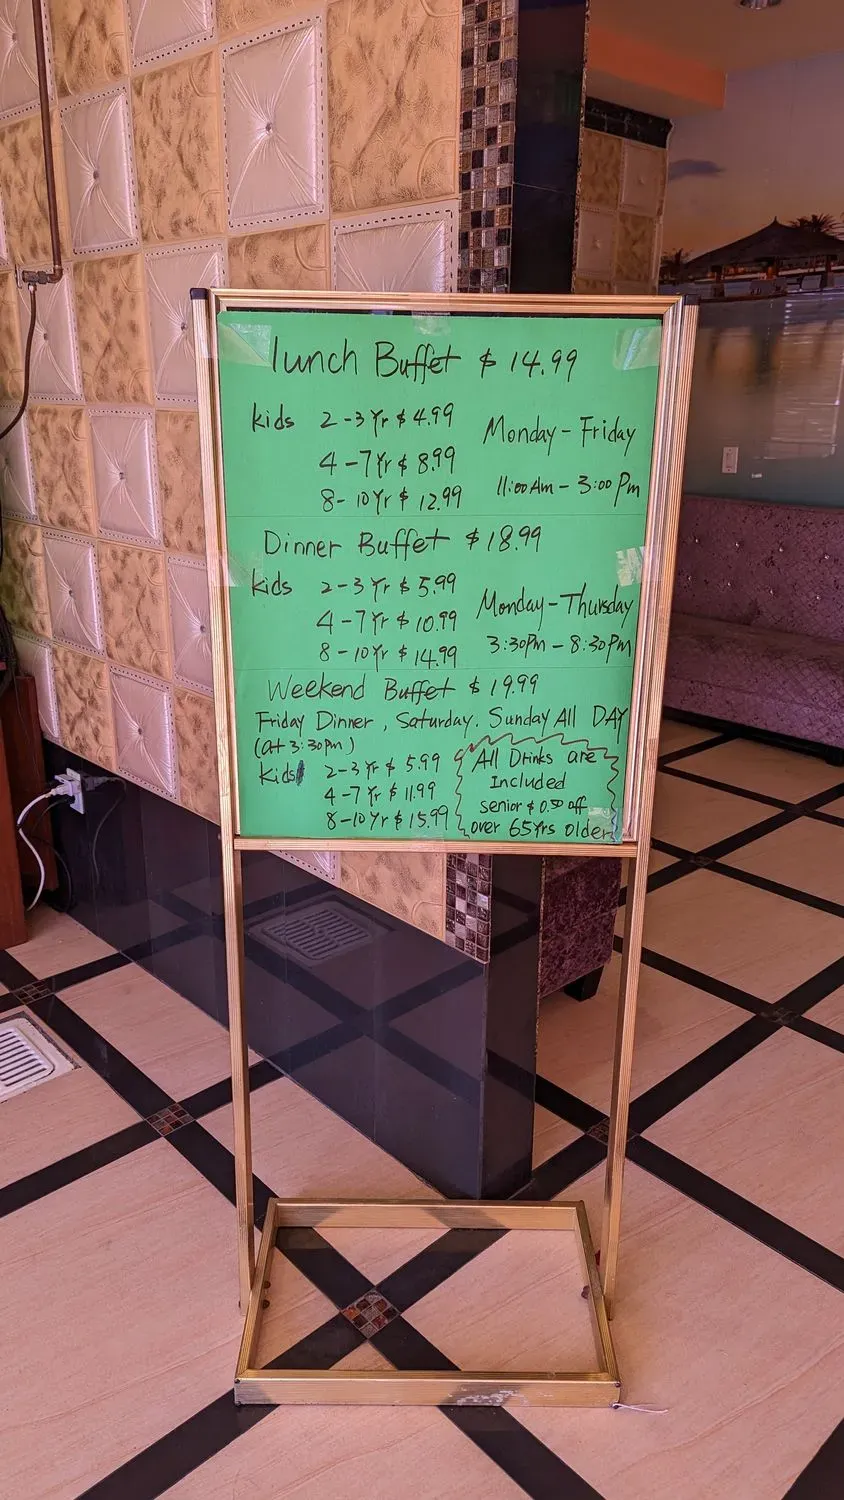 lunch Buffet $ 14.99
kids 2-3 Yr $ 4.99
4-7 Yr $ 8.99
8-10 Yr $ 12.99
Monday - Friday
11:00 Am - 3:00 Pm
Dinner Buffet $ 18.99
kids 2-3 Yr $ 5.99
4-7 Yr $ 10.99
8-10 Yr $ 14.99
Monday - Thursday
3:30Pm - 8:30PM
Weekend Buffet $ 19.99
Friday Dinner, Saturday, Sunday All DAY
(at 3:30pm)
Kids 2-3 Yr $ 5.99
4-7 Yr $ 11.99
8-10 Yr $ 15.99
All Drinks are
Included
senior $ 0.50 off
over 65Yrs older